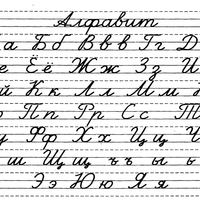 Алфавит
а Б б В в в Г г Д
е Ё ё Ж ж З з И
й К к Л л М м
П п Р р С с Т
у Ф ф Х х Ц ц Ч
ш Щ щ ъ ъ ы ь
Э э Ю ю Я я